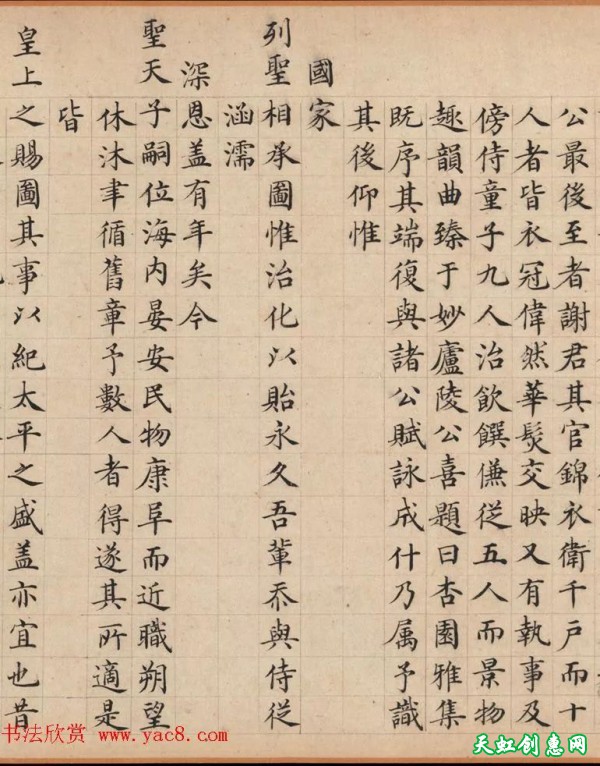 公最後至者謝君其官錦衣衛千戶而十
人者皆衣冠偉然華髮交映又有執事及
傍侍童子九人治飲饌傔從五人而景物
趣韻曲臻于妙廬陵公喜題曰杏園雅集
既序其端復與諸公賦詠成什乃属予識
其後仰惟
國家
列聖相承圖惟治化以貽永久吾輩忝與侍從
涵濡
深恩盖有年矣今
聖天子嗣位海内晏安民物康阜而近職朔望
休沐聿循舊章予數人者得遂其所適是
皆
皇上之賜圖其事以紀太平之盛盖亦宜也昔
书法欣赏 www.yac8.com
天虹创惠网